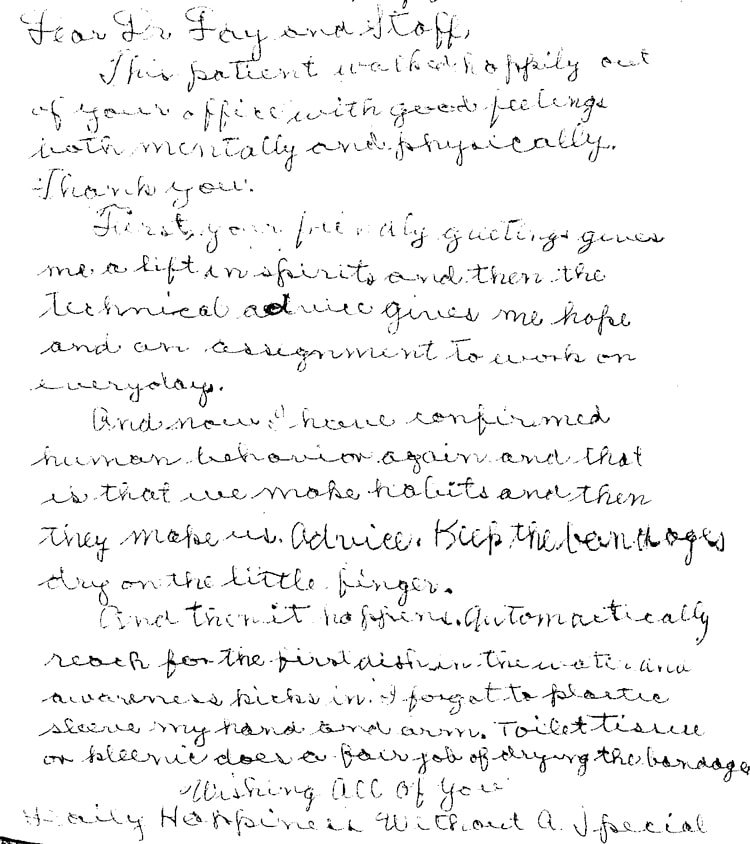 Dear Dr. Fay and Staff,
This patient walked happily out
of your office with good feelings
both mentally and physically.
Thank you.
First, your friendly greetings gives
me a lift in spirits and then the
technical advice gives me hope
and an assignment to work on
everyday.
And now I have confirmed
human behavior again and that
is that we make habits and then
they make us. Advice. Keep the bandages
dry on the little finger.
And then it happens. Automactically
reach for the first dish in the water and
awareness kicks in. I forgot to plastic
sleeve my hand and arm. Toilet tissue
or kleenic does a fair job of drying the bandage
Wishing All Of You
Daily Happiness Without A Special